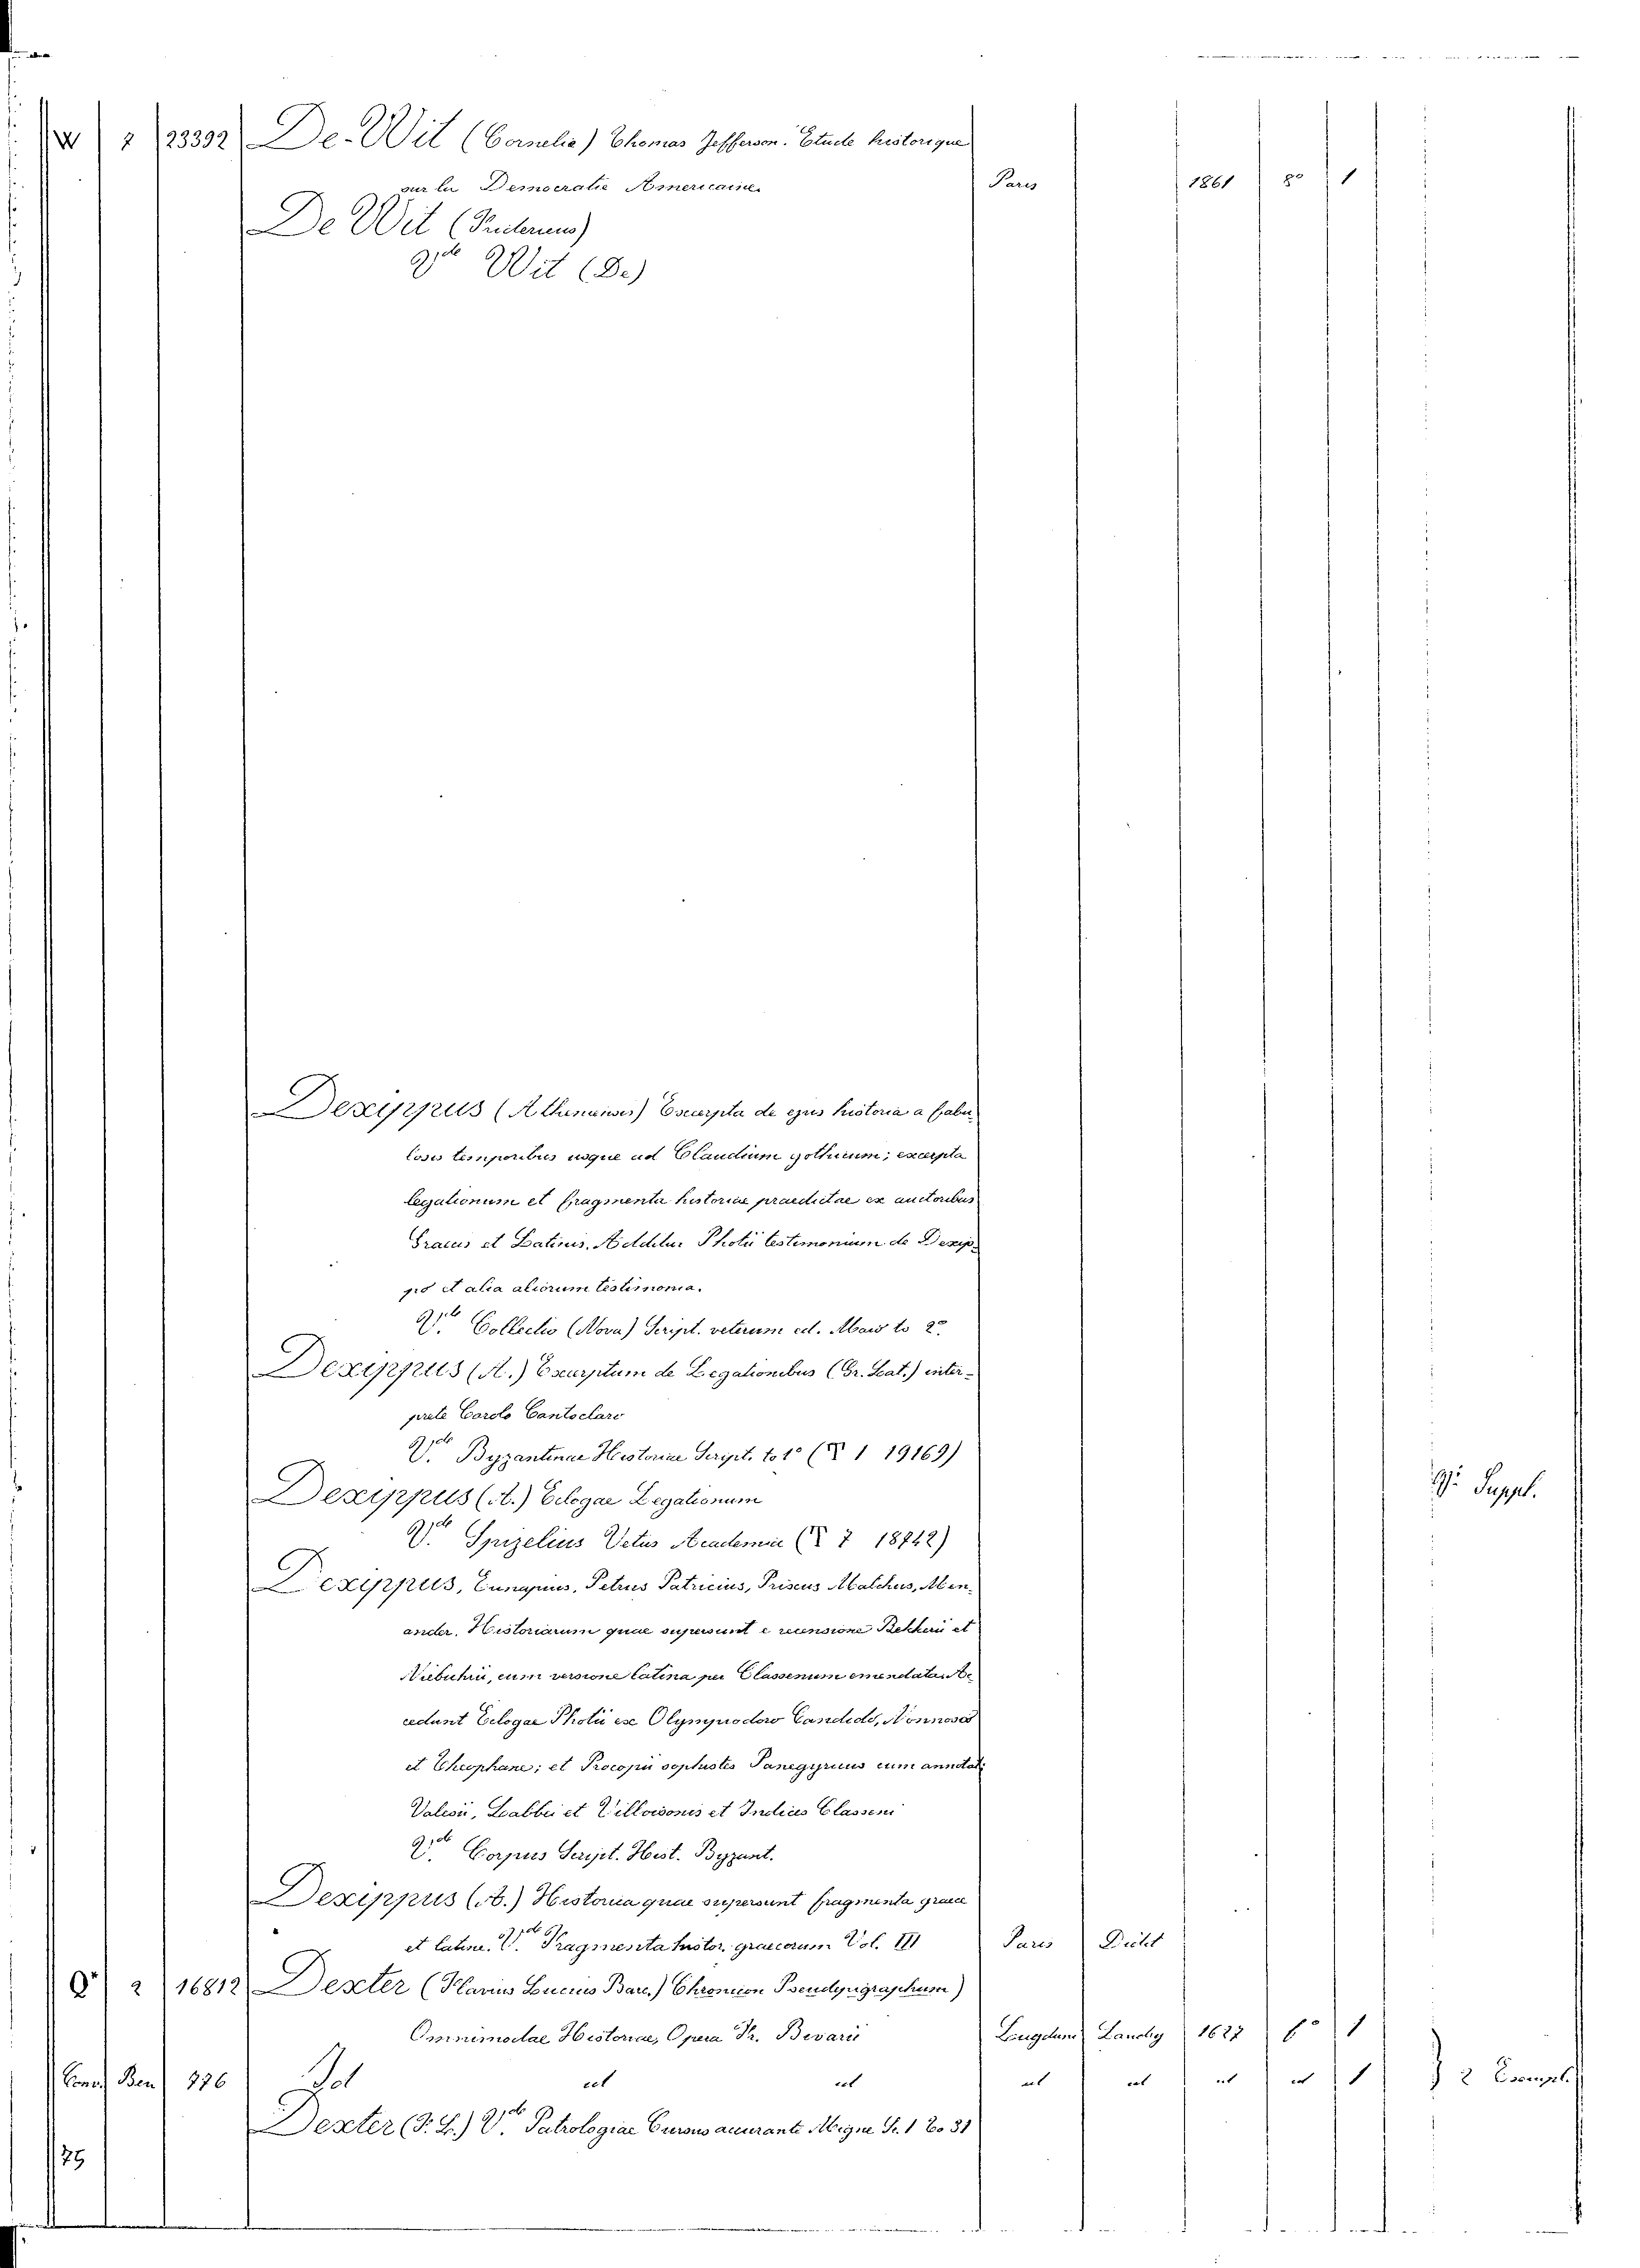 W 2 23392 De-Wit (Cornelis) Thomas Jefferson. Etude historique
sur la Democratie Americaine. Paris 1861 8° 1
De Wit
Vide Wit (De)
Dexippus (Atheniensis) Excerpta de ejus historia a fabu-
losis temporibus usque ad Claudium gothicum; excerpta
legationum et fragmenta historiae praedictae ex auctoribus
Graecis et Latinis. Additur Photii testimonium de Dexip-
po et alia aliorum testimonia.
Vde Collectio (Nova) Script. veterum ed. Maio to 2°
Dexippus (A.) Excerptum de Legationibus (Gr. Lat.) inter-
prete Carolo Cantoclaro
Vde Byzantinae Historiae Script. to 1° (X 1 19169)
Dexippus (A.) Eclogae Legationum
Vde Spizelius Vetus Academia (X 7 18742) Vi Suppl.
Dexippus, Eunapius, Petrus Patricius, Priscus Malchus, Men-
ander. Historiarum quae supersunt e recensione Bekkeri et
Niebuhrii, cum versione latina per Classenum emendata. Ac-
cedunt Eclogae Photii ex Olympiodoro Candido, Nonnoso
et Theophane; et Procopii sophistes Panegyricus cum annotat:
Valesii, Labbei et Villoisonis et Indices Classeni
Vde Corpus Script. Hist. Byzant.
Dexippus (A.) Historia quae supersunt fragmenta graece
et latine. Vde Fragmenta histor. graecorum Vol. III Paris Didot
2 16812 Dexter (Flavius Lucius Barc.) Chronicon Pseudepigraphum)
Omnimodae Historiae, Opera Fr. Bivarii Lugduni Landry 1627 f° 1
Ben 776 Id et et et et et et 1 } 2 Exempl.
Dexter (F. L.) Vde Patrologiae Cursus accurante Migne Sr. 1 To 31